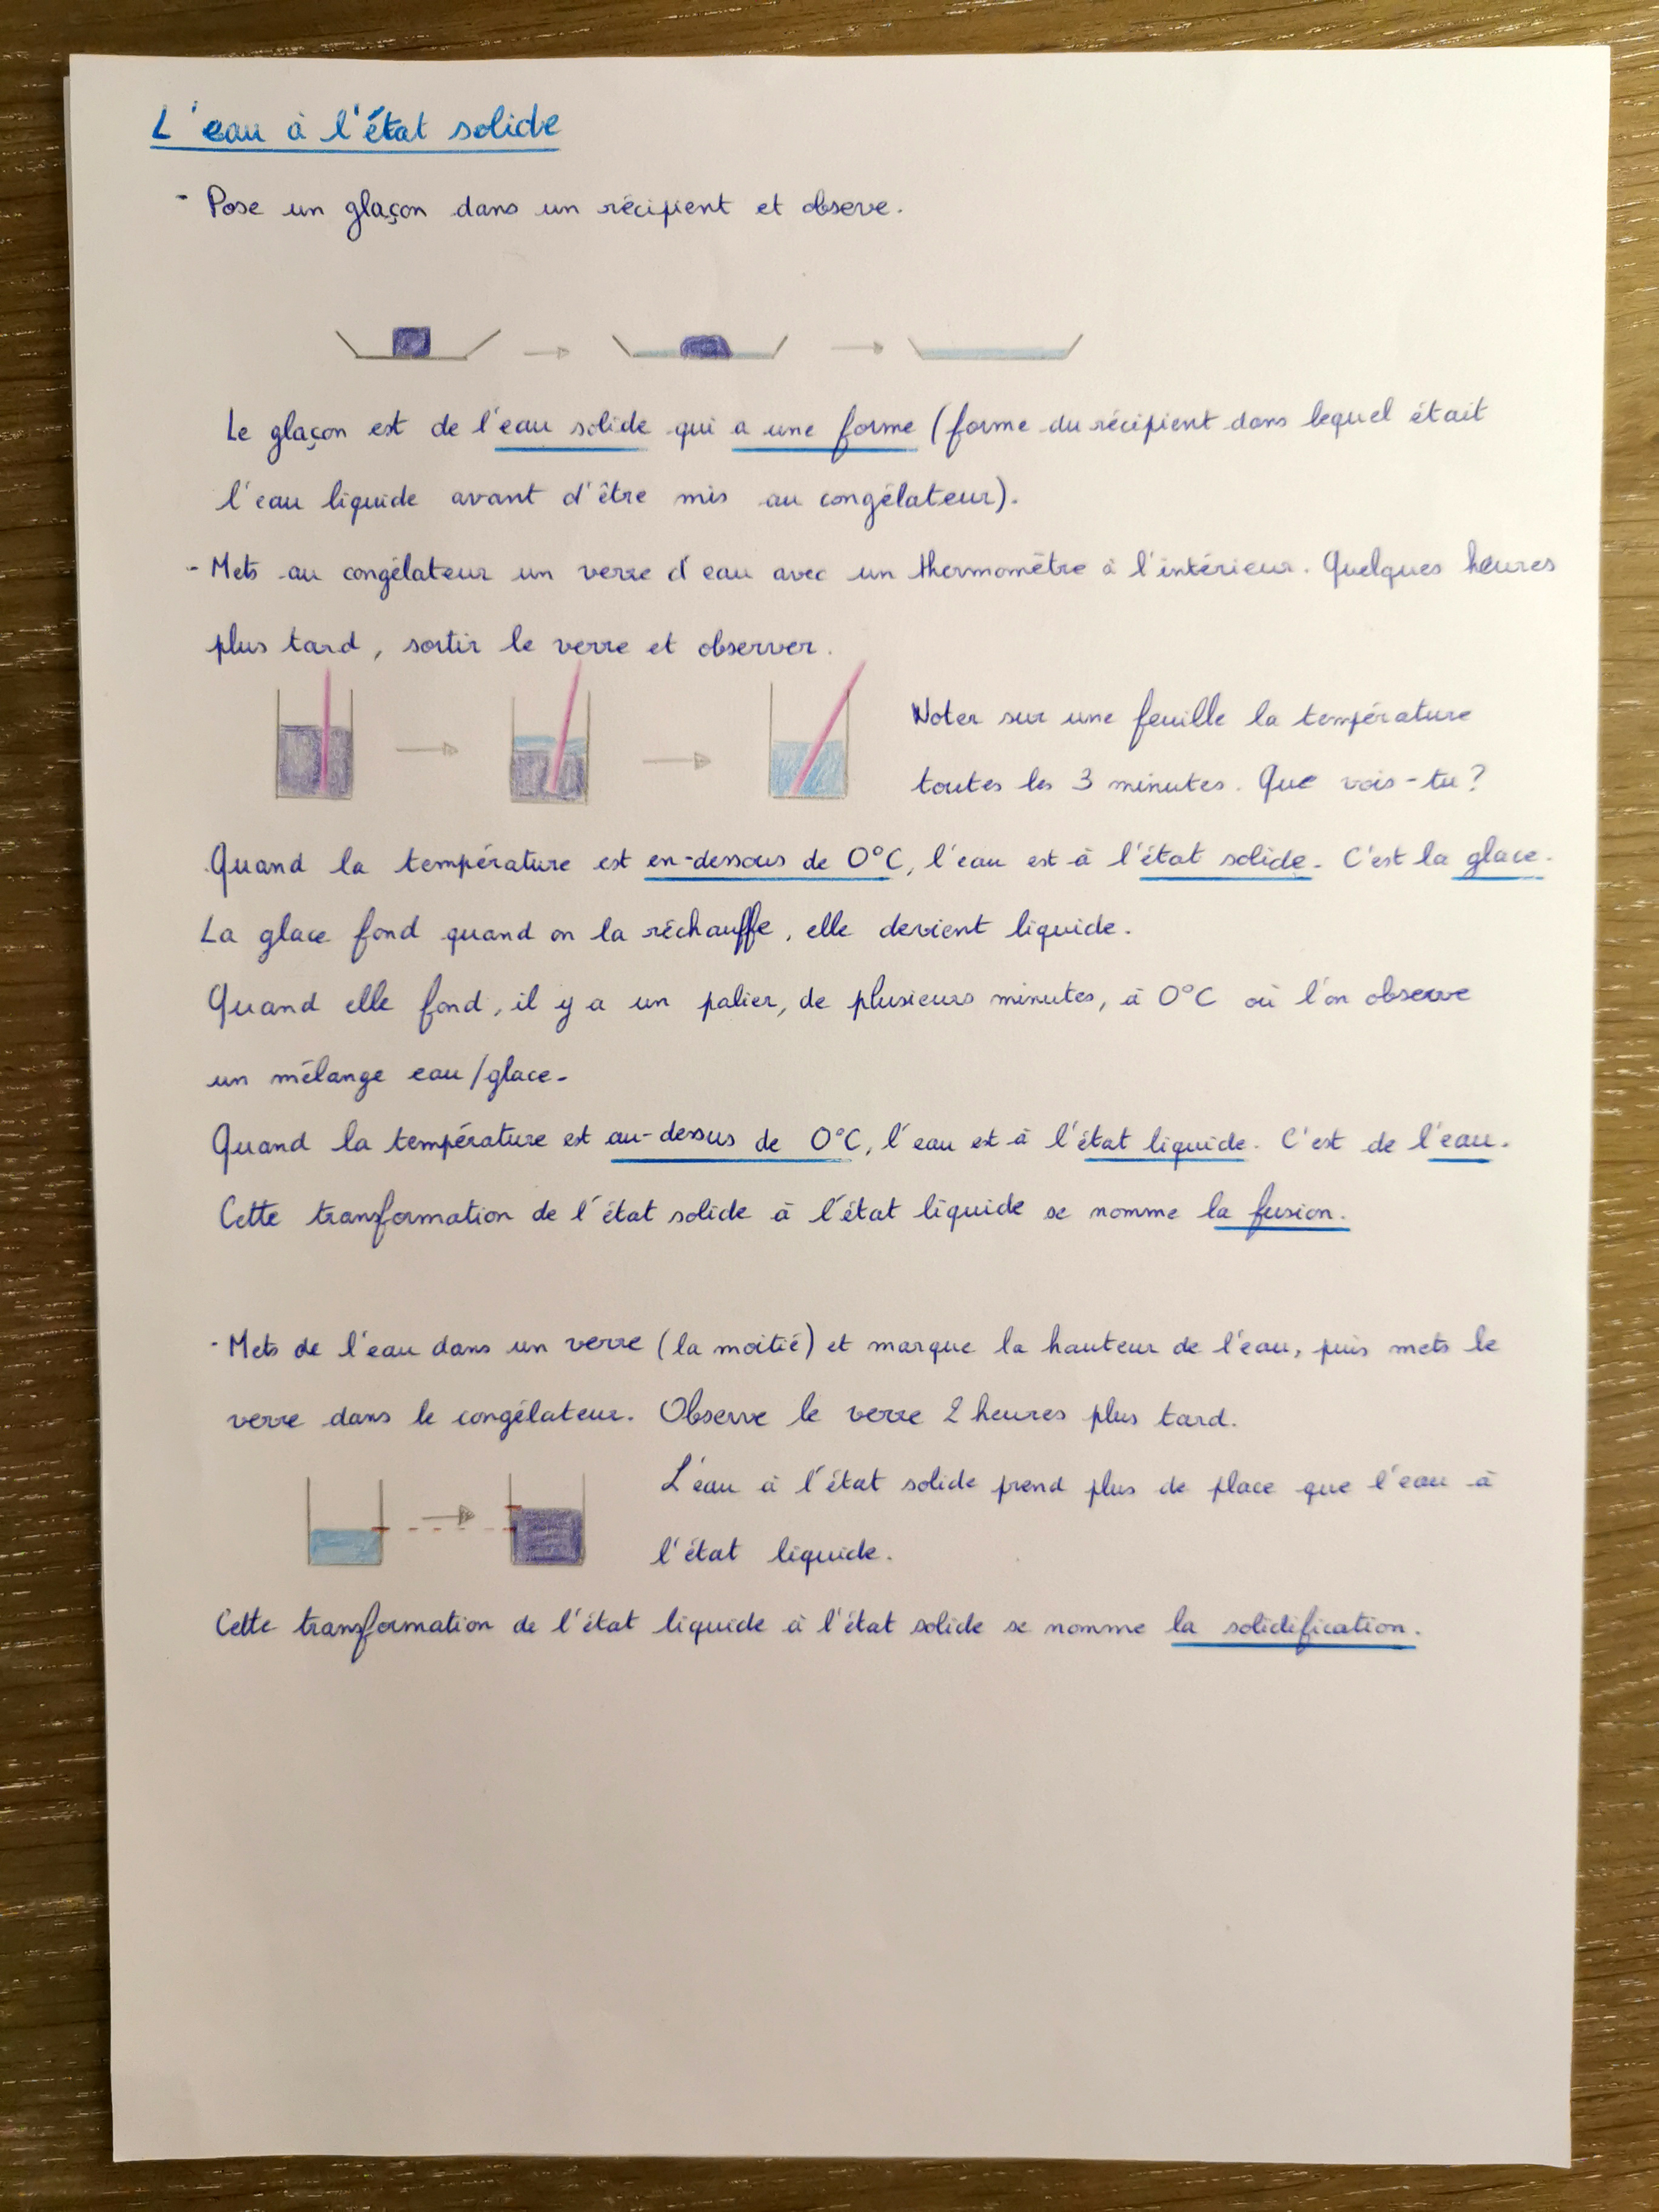 L'eau à l'état solide
- Pose un glaçon dans un récipient et obseve.
Le glaçon est de l'eau solide qui a une forme (forme du récipient dans lequel était
l'eau liquide avant d'être mis au congélateur).
- Mets au congélateur un verre d'eau avec un thermomètre à l'intérieur. Quelques heures
plus tard, sortir le verre et observer.
Noter sur une feuille la température
toutes les 3 minutes. Que vois-tu?
Quand la température est en-dessous de 0°C, l'eau est à l'état solide. C'est la glace.
La glace fond quand on la réchauffe, elle devient liquide.
Quand elle fond, il y a un palier, de plusieurs minutes, à 0°C où l'on observe
un mélange eau/glace.
Quand la température est au-dessus de 0°C, l'eau est à l'état liquide. C'est de l'eau.
Cette transformation de l'état solide à l'état liquide se nomme la fusion.
- Mets de l'eau dans un verre (la moitié) et marque la hauteur de l'eau, puis mets le
verre dans le congélateur. Observe le verre 2 heures plus tard.
L'eau à l'état solide prend plus de place que l'eau à
l'état liquide.
Cette transformation de l'état liquide à l'état solide se nomme la solidification.